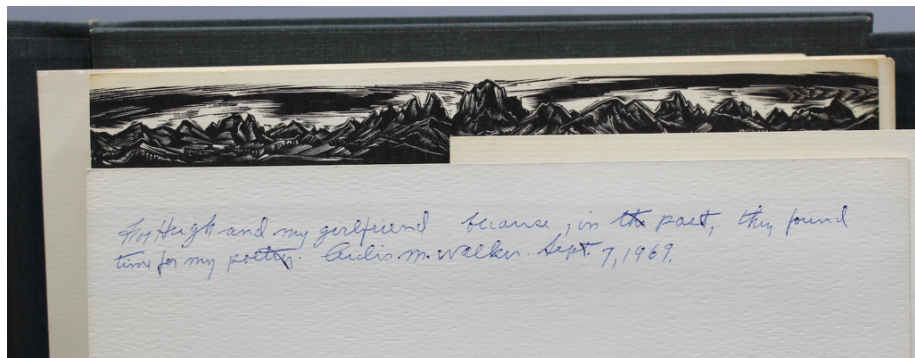 For Hugh and my girlfriend because, in the past, they found
time for my poetry. Ardis M. Walker. Sept. 7, 1969.